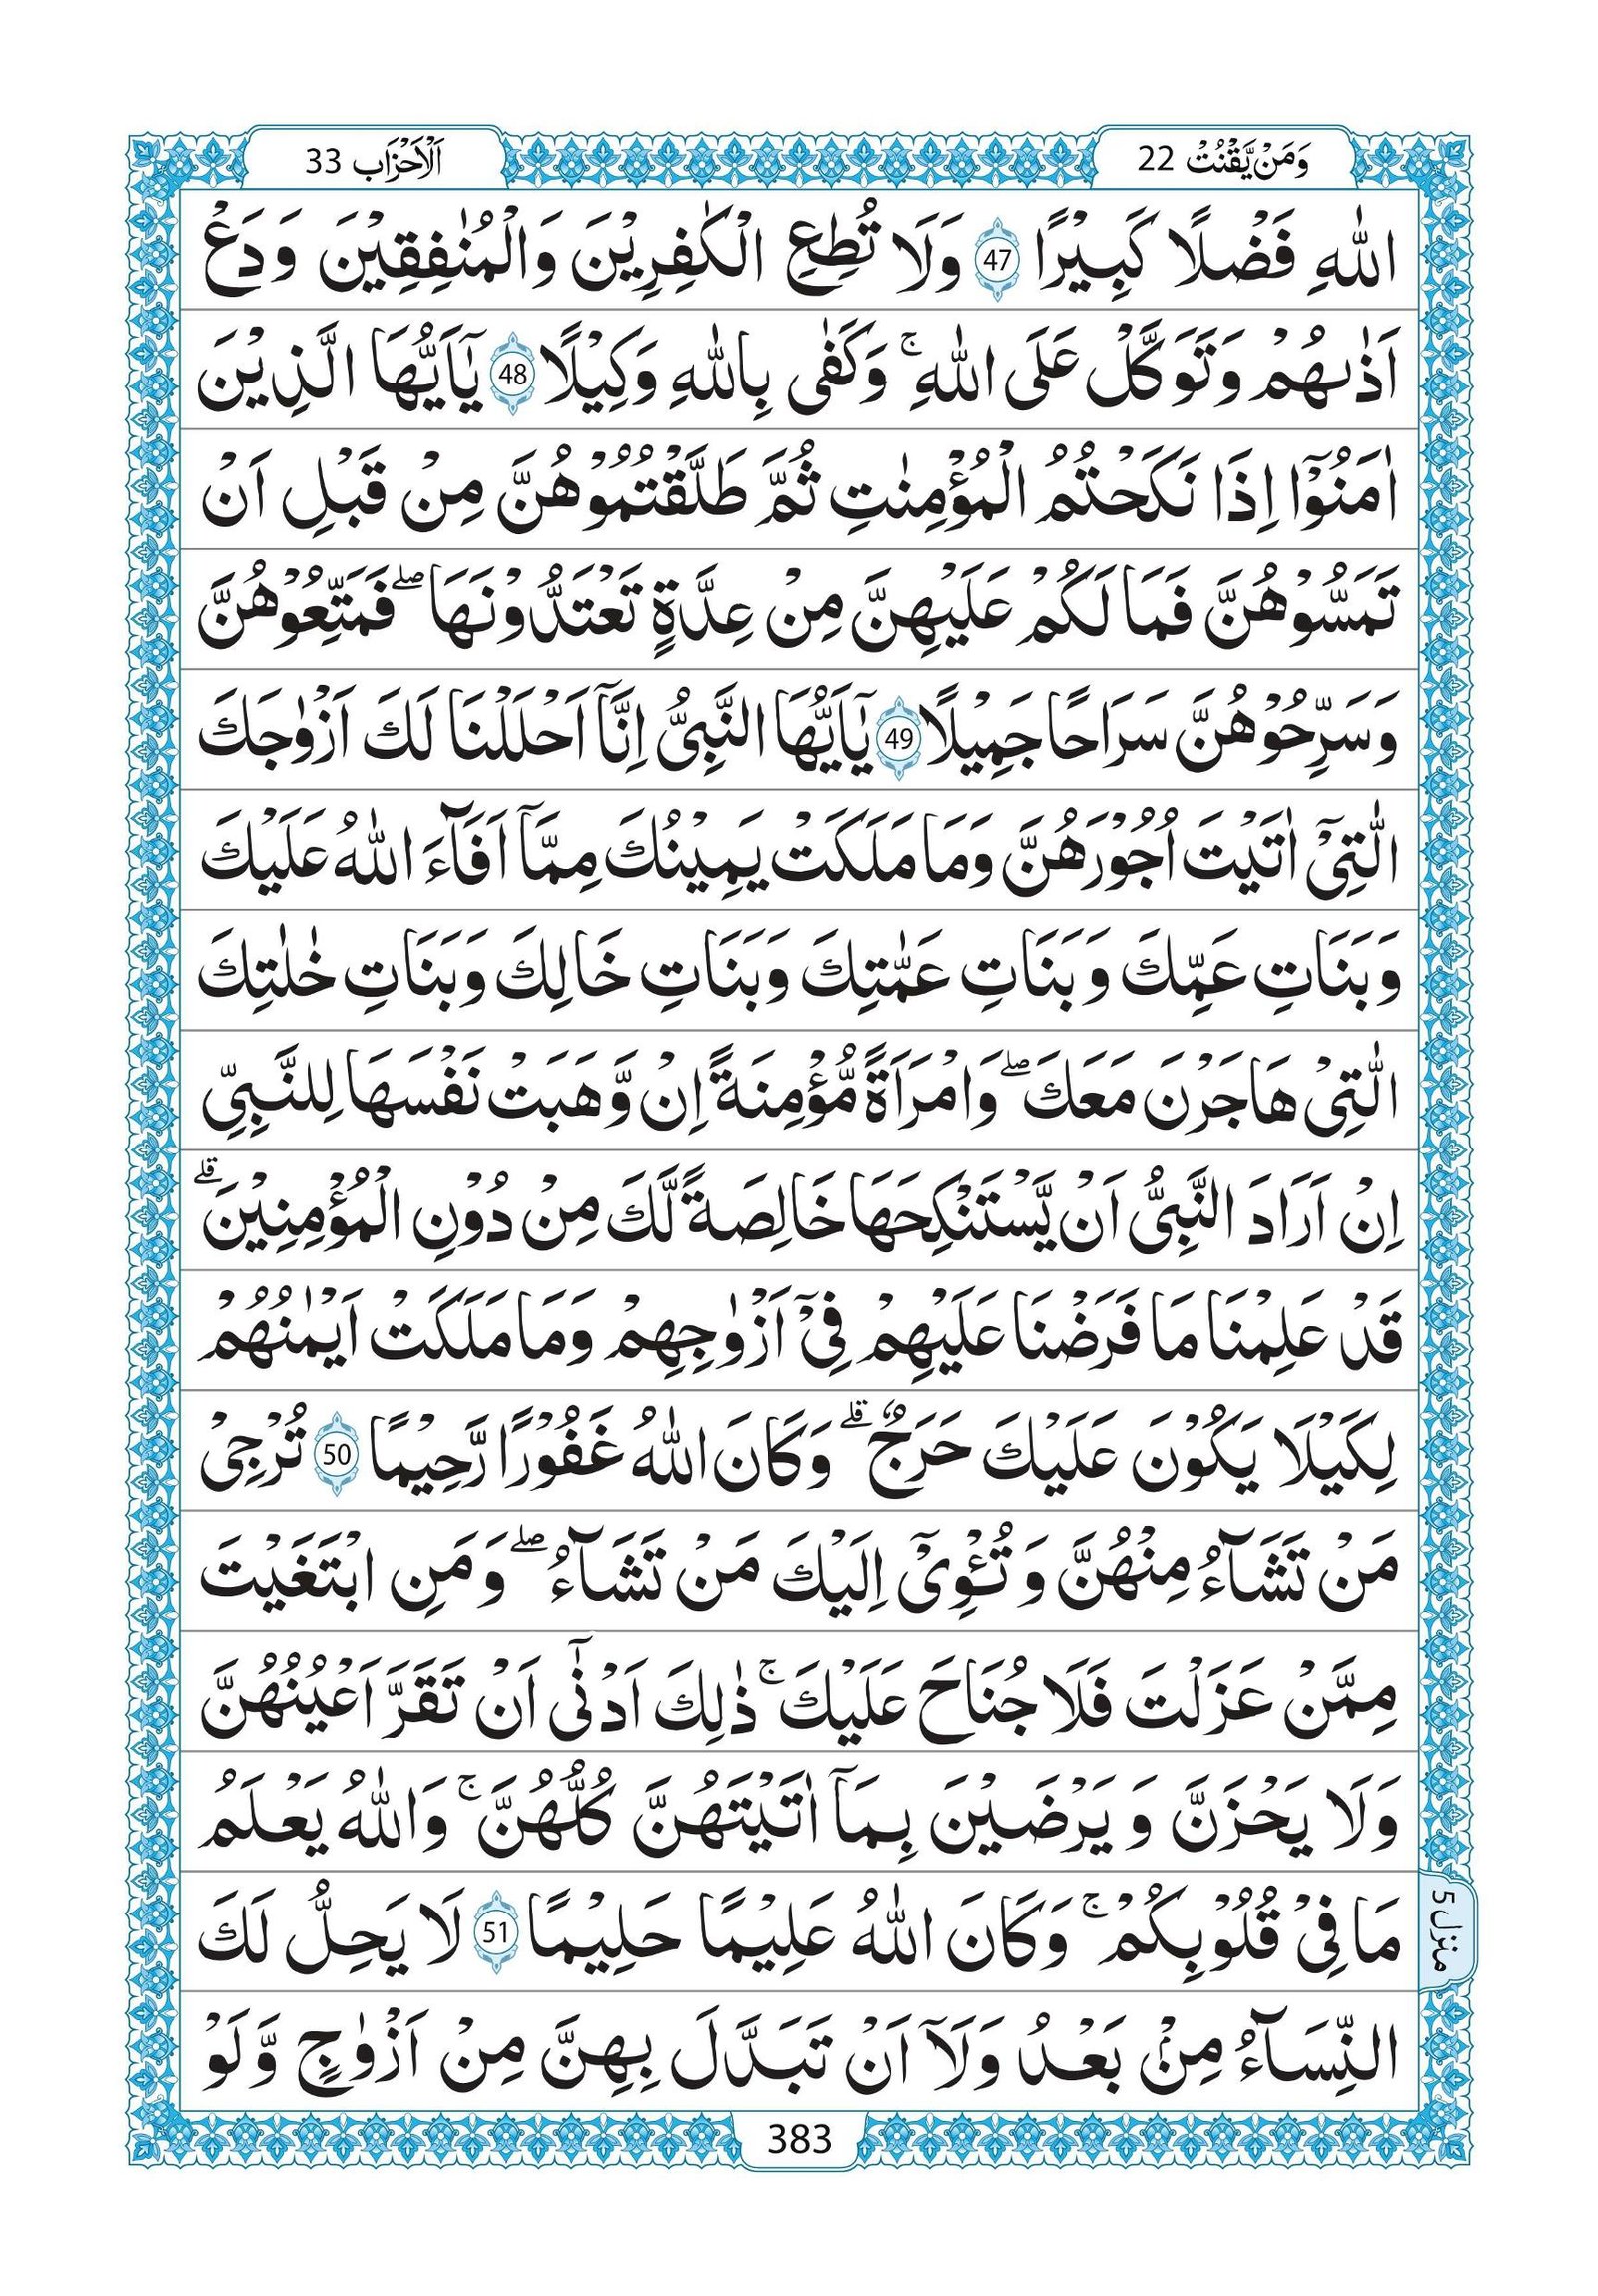 وَمَنْ يَّقْنُتْ 22
اَلْاَحْزَاب 33
اللّٰهِ فَضْلًا كَبِيْرًا 47 وَلَا تُطِعِ الْكٰفِرِيْنَ وَالْمُنٰفِقِيْنَ وَدَعْ
اَذٰىهُمْ وَتَوَكَّلْ عَلَى اللّٰهِ ۚ وَكَفٰى بِاللّٰهِ وَكِيْلًا 48 يٰٓاَيُّهَا الَّذِيْنَ
اٰمَنُوْٓا اِذَا نَكَحْتُمُ الْمُؤْمِنٰتِ ثُمَّ طَلَّقْتُمُوْهُنَّ مِنْ قَبْلِ اَنْ
تَمَسُّوْهُنَّ فَمَا لَكُمْ عَلَيْهِنَّ مِنْ عِدَّةٍ تَعْتَدُّوْنَهَا ۖ فَمَتِّعُوْهُنَّ
وَسَرِّحُوْهُنَّ سَرَاحًا جَمِيْلًا 49 يٰٓاَيُّهَا النَّبِىُّ اِنَّآ اَحْلَلْنَا لَكَ اَزْوٰجَكَ
الّٰتِىْٓ اٰتَيْتَ اُجُوْرَهُنَّ وَمَا مَلَكَتْ يَمِيْنُكَ مِمَّآ اَفَآءَ اللّٰهُ عَلَيْكَ
وَبَنَاتِ عَمِّكَ وَبَنَاتِ عَمّٰتِكَ وَبَنَاتِ خَالِكَ وَبَنَاتِ خٰلٰتِكَ
الّٰتِىْ هَاجَرْنَ مَعَكَ ۖ وَامْرَاَةً مُّؤْمِنَةً اِنْ وَّهَبَتْ نَفْسَهَا لِلنَّبِىِّ
اِنْ اَرَادَ النَّبِىُّ اَنْ يَّسْتَنْكِحَهَا خَالِصَةً لَّكَ مِنْ دُوْنِ الْمُؤْمِنِيْنَ ۗ
قَدْ عَلِمْنَا مَا فَرَضْنَا عَلَيْهِمْ فِىْٓ اَزْوٰجِهِمْ وَمَا مَلَكَتْ اَيْمٰنُهُمْ
لِكَيْلَا يَكُوْنَ عَلَيْكَ حَرَجٌ ۗ وَكَانَ اللّٰهُ غَفُوْرًا رَّحِيْمًا 50 تُرْجِىْ
مَنْ تَشَآءُ مِنْهُنَّ وَتُـْٔوِىْٓ اِلَيْكَ مَنْ تَشَآءُ ۖ وَمَنِ ابْتَغَيْتَ
مِمَّنْ عَزَلْتَ فَلَا جُنَاحَ عَلَيْكَ ۚ ذٰلِكَ اَدْنٰٓى اَنْ تَقَرَّ اَعْيُنُهُنَّ
وَلَا يَحْزَنَّ وَيَرْضَيْنَ بِمَآ اٰتَيْتَهُنَّ كُلُّهُنَّ ۚ وَاللّٰهُ يَعْلَمُ
مَا فِىْ قُلُوْبِكُمْ ۚ وَكَانَ اللّٰهُ عَلِيْمًا حَلِيْمًا 51 لَا يَحِلُّ لَكَ
النِّسَآءُ مِنْۢ بَعْدُ وَلَآ اَنْ تَبَدَّلَ بِهِنَّ مِنْ اَزْوٰجٍ وَّلَوْ
منزل 5
383